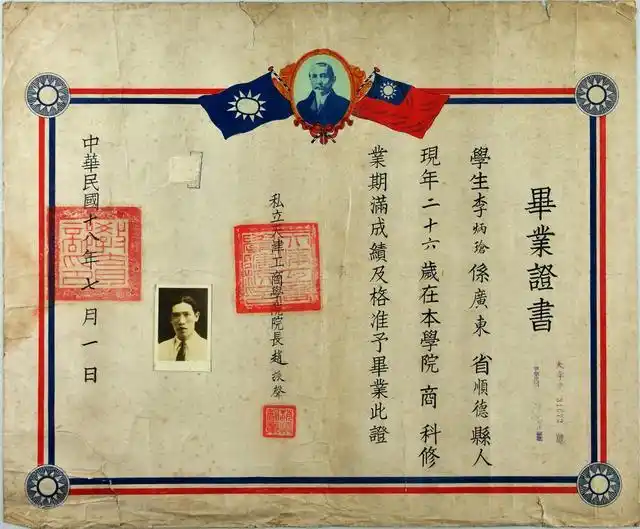 畢業證書
學生李炳瑲係廣東省順德縣人
現年二十六歲在本學院商科修
業期滿成績及格准予畢業此證
私立天津工商學院院長趙振聲
中華民國十八年七月一日
教育部印